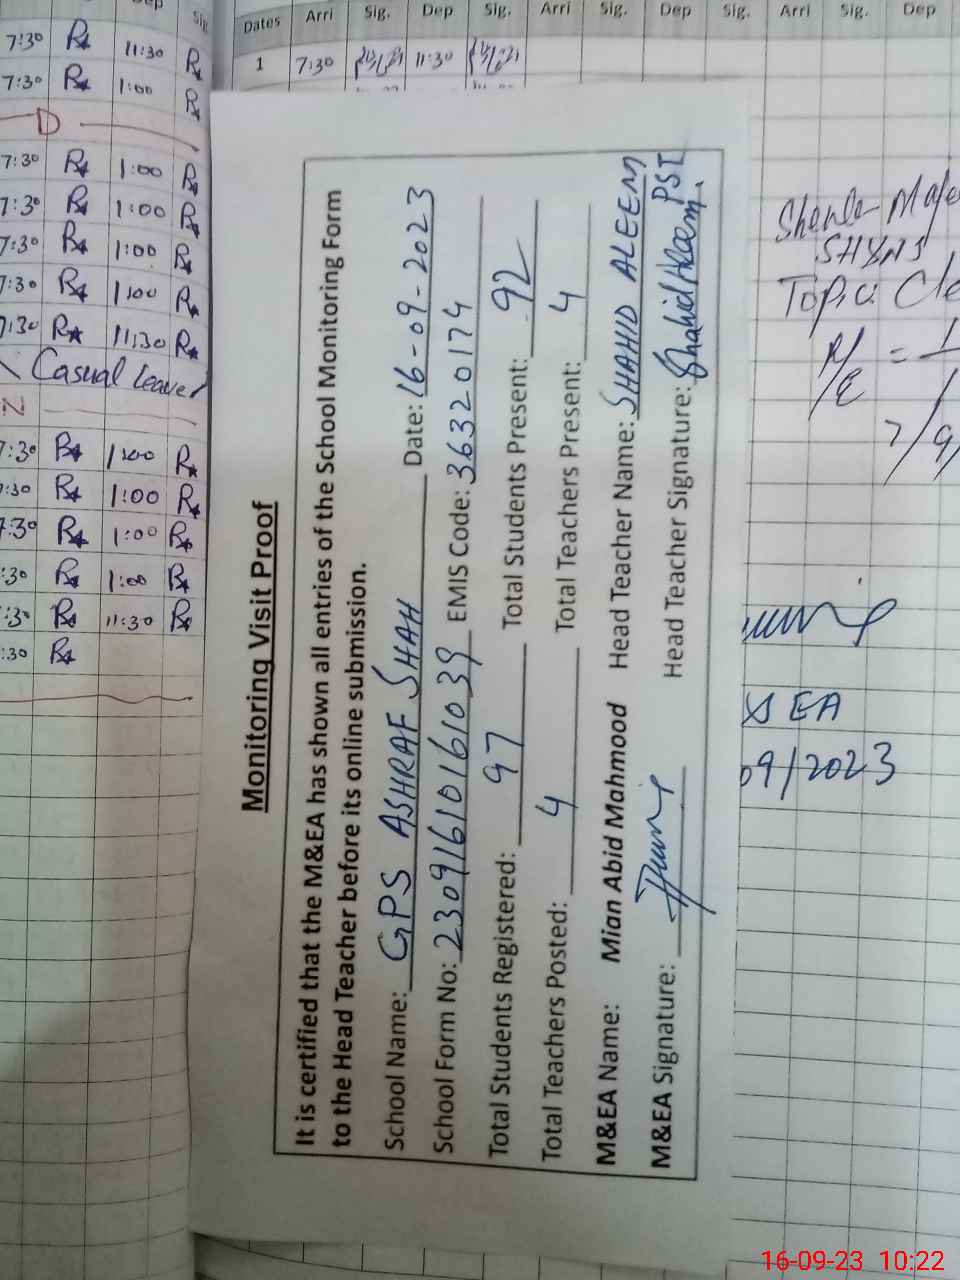 Monitoring Visit Proof
It is certified that the M&EA has shown all entries of the School Monitoring Form
to the Head Teacher before its online submission.
School Name: GPS ASHRAF SHAH Date: 16-09-2023
School Form No: 2309161016103 9 EMIS Code: 36320174
Total Students Registered: 97 Total Students Present: 92
Total Teachers Posted: 4 Total Teachers Present: 4
M&EA Name: Mian Abid Mahmood Head Teacher Name: SHAHID ALEEM PST
M&EA Signature: Head Teacher Signature: Shahid Aleem
Dates Arri Sig. Dep Sig. Arri Sig. Dep Sig. Arri Sig. Dep
1 7:30 11:30
Dep Sig.
7:30 11:30
7:30 1:00
D
7:30 1:00
7:30 1:00
7:30 1:00
7:30 1:00
7:30 11:30
Casual Leave
Z
7:30 1:00
7:30 1:00
7:30 1:00
:30 1:00
7:30 11:30
:30
Topic:
EA
09/2023
16-09-23 10:22